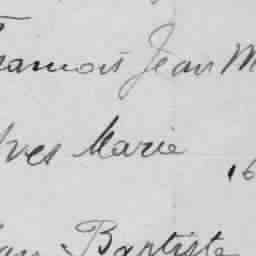 François Jean M
Yves Marie
16
Jean Baptiste